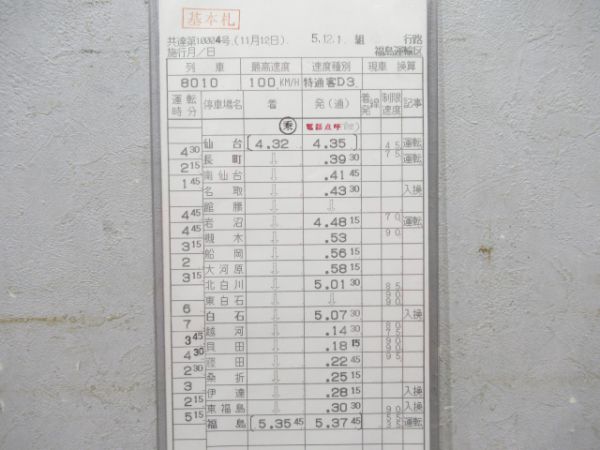 基本札
共達第10024号.(11月12日). 5.12.1. 組 行路
施行月/日 福島運輸区
列車 最高速度 速度種別 現車 換算
8010 100 KM/H 特通客D3.
運転時分 停車場名 着 発(通) 着発線 制限速度 記事
乗 電話点呼
仙台 4.32 4.35 45 運転
4 30 長町 ⇩ .39 30 75 運転
2 15 南仙台 ⇩ .41 45
1 45 名取 ⇩ .43 30 入換
館腰 ⇩ ⇩
4 45 岩沼 ⇩ 4.48 15 70 運転
4 45 槻木 ⇩ .53 90
3 15 船岡 ⇩ .56 15
2 大河原 ⇩ .58 15
3 15 北白川 ⇩ 5.01 30 85
東白石 ⇩ ⇩ 90
6 白石 ⇩ 5.07 30 90 入換
7 越河 ⇩ .14 30 80
3 45 貝田 ⇩ .18 15
4 30 藤田 ⇩ .22 45 95
2 30 桑折 ⇩ .25 15
3 伊達 ⇩ .28 15 入換
2 15 東福島 ⇩ .30 30 90 入換
5 15 福島 5.35 45 5.37 45 運転